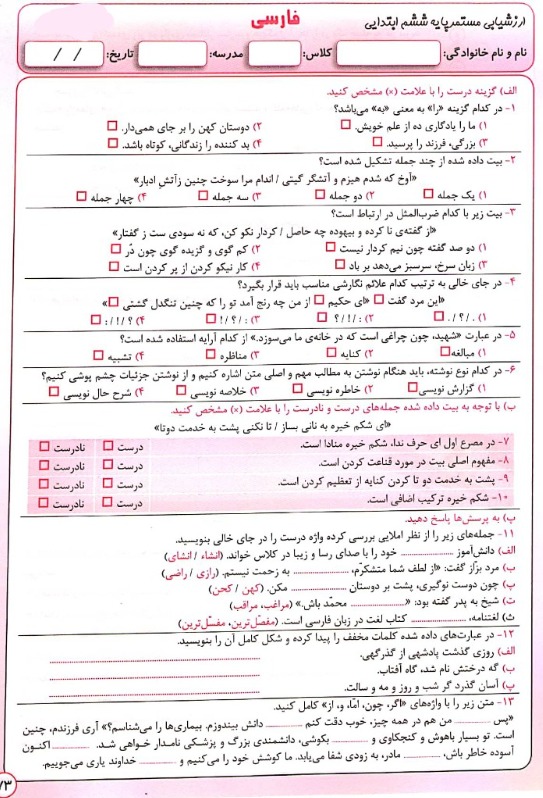 ارزشیابی مستمر پایه ششم ابتدایی فارسی
نام و نام خانوادگی: کلاس: مدرسه: تاریخ: / /
الف) گزینه درست را با علامت (×) مشخص کنید.
۱- در کدام گزینه «را» به معنی «به» می‌باشد؟
۱) ما را یادگاری ده از علم خویش. ۲) دوستان کهن را بر جای همی‌دار.
۳) بزرگی، فرزند را پرسید. ۴) بد کننده را زندگانی، کوتاه باشد.
۲- بیت داده شده از چند جمله تشکیل شده است؟
«آوخ که شدم هیزم و آتشگر گیتی / اندام مرا سوخت چنین زآتشِ ادبار»
۱) یک جمله ۲) دو جمله ۳) سه جمله ۴) چهار جمله
۳- بیت زیر با کدام ضرب‌المثل در ارتباط است؟
«از گفته‌ی نا کرده و بیهوده چه حاصل / کردار نکو کن، که نه سودی ست ز گفتار»
۱) دو صد گفته چون نیم کردار نیست ۲) کم گوی و گزیده گوی چون دُر
۳) زبان سرخ، سرسبز می‌دهد بر باد ۴) کار نیکو کردن از پر کردن است
۴- در جای خالی به ترتیب کدام علائم نگارشی مناسب باید قرار بگیرد؟
«این مرد گفت «ای حکیم از من چه رنج آمد تو را که چنین تنگدل گشتی »
۵- در عبارت «شهید، چون چراغی است که در خانه‌ی ما می‌سوزد.» از کدام آرایه استفاده شده است؟
۱) مبالغه ۲) کنایه ۳) مناظره ۴) تشبیه
۶- در کدام نوع نوشته، باید هنگام نوشتن به مطالب مهم و اصلی متن اشاره کنیم و از نوشتن جزئیات چشم پوشی کنیم؟
۱) گزارش نویسی ۲) خاطره نویسی ۳) خلاصه نویسی ۴) شرح حال نویسی
ب) با توجه به بیت داده شده جمله‌های درست و نادرست را با علامت (×) مشخص کنید.
«ای شکم خیره به نانی بساز / تا نکنی پشت به خدمت دوتا»
۷- در مصرع اول ای حرف ندا، شکم خیره منادا است. درست نادرست
۸- مفهوم اصلی بیت در مورد قناعت کردن است. درست نادرست
۹- پشت به خدمت دو تا کردن کنایه از تعظیم کردن است. درست نادرست
۱۰- شکم خیره ترکیب اضافی است. درست نادرست
پ) به پرسش‌ها پاسخ دهید.
۱۱- جمله‌های زیر را از نظر املایی بررسی کرده واژه درست را در جای خالی بنویسید.
الف) دانش‌آموز ........ خود را با صدای رسا و زیبا در کلاس خواند. (انشاء / انشای)
ب) مرد بزّاز گفت: «از لطف شما متشکّرم، ........ به زحمت نیستم. (رازی / راضی)
پ) چون دوست نوگیری، پشت بر دوستان ........ مکن. (کهن / کحن)
ت) شیخ به پدر گفته بود: «........ محمّد باش.» (مراغب، مراقب)
ث) لغتنامه، ........ کتاب لغت در زبان فارسی است. (مفصّل‌ترین، مفسّل‌ترین)
۱۲- در عبارت‌های داده شده کلمات مخفف را پیدا کرده و شکل کامل آن را بنویسید.
الف) روزی گذشت پادشهی از گذرگهی. ........
ب) گه درختش نام شد، گاه آفتاب. ........
پ) آسان گذرد گر شب و روز و مه و سالت. ........
۱۳- متن زیر را با واژه‌های «اگر، چون، امّا، و، از» کامل کنید.
«پس ........ من هم در همه چیز، خوب دقت کنم ........ دانش بیندوزم. بیماری‌ها را می‌شناسم؟» آری فرزندم، چنین
است. تو بسیار باهوش و کنجکاوی و ........ بکوشی، دانشمندی بزرگ و پزشکی نامدار خواهی شد. ........ اکنون
آسوده خاطر باش، ........ مادر، به زودی شفا می‌یابد. ما کوشش خود را می‌کنیم و ........ خداوند یاری می‌جوییم.